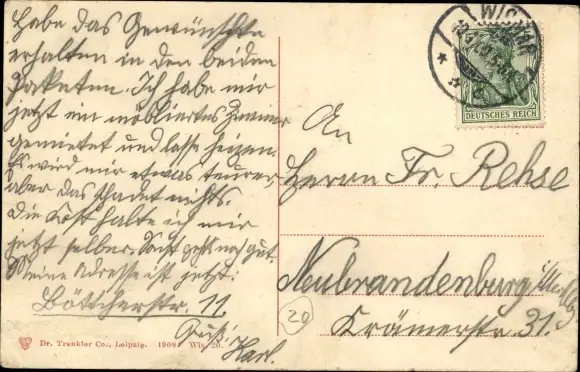 Habe das Gewünschte
erhalten in den beiden
Paketen. Ich habe mir
jetzt ein möbliertes Zimmer
gemietet und lasse heizen.
Es wird mir etwas teurer
aber das schadet nichts.
Die Kost halte ich mir
jetzt selber. Sonst geht noch gut.
Meine Adresse ist jetzt:
Böttcherstr. 11
Gruß
Karl.
WISMAR
DEUTSCHES REICH
An
Herrn Fr. Rehse
Neubrandenburg i/Mecklbg
Krämerstr. 31.
20
Dr. Trenkler Co., Leipzig. 1908. Wis. 20.